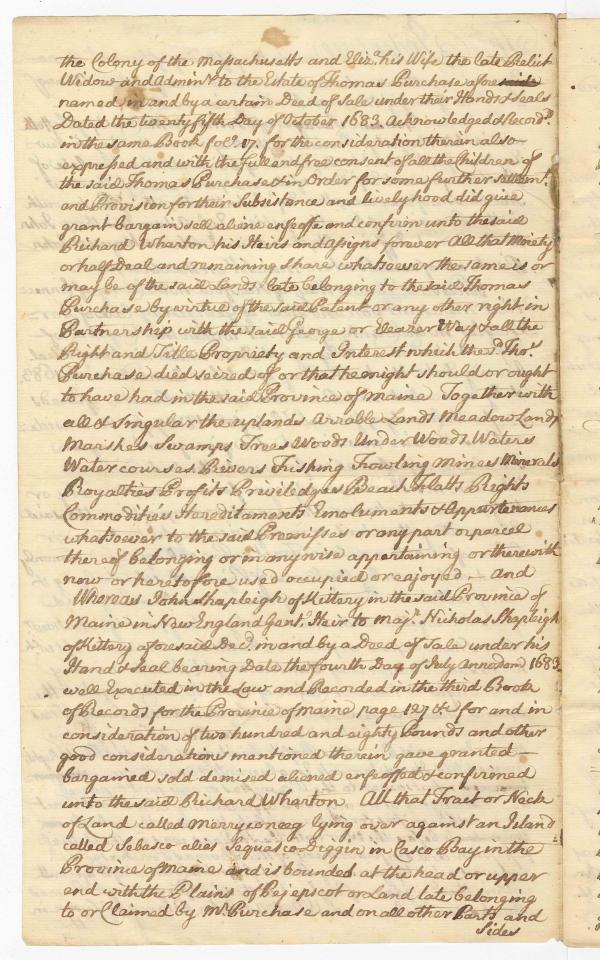 the Colony of the Massachusetts and Eliz.a his Wife the late Relict
Widow and Admin.x to the Estate of Thomas Purchase afore said
named in and by a certain Deed of Sale under their Hands & Seals
Dated the twenty fifth Day of October 1683. Acknowledged & Record.d
in the same Book fol.o 17. for the consideration therein also
expressed and with the full and free consent of all the Children of
the said Thomas Purchase & in Order for some further settlem.t
and Provision for their Subsistance and livelyhood did give
grant bargain sell aliene enfeoffe and confirm unto the said
Richard Wharton his Heirs and Assigns forever All that Moiety
or half Deal and remaining Share whatsoever the same is or
may be of the said Lands late belonging to the said Thomas
Purchase by virtue of the said Patent or any other right in
Partnership with the said George or Eleazer Way & all the
Right and Title Propriety and Interest which the s.d Tho.s
Purchase died seized of or that he might should or ought
to have had in the said Province of Maine Together with
all & singular the uplands Arriable Lands Meadow Lands
Marshes Swamps Trees Woods Under Woods Waters
Water courses Rivers Fishing Fowling Mines Minerals
Royalties Profits Priviledges Beach & flatts Rights
Commodities Hereditaments Emoluments & Appurtenances
whatsoever to the said Premisses or any part or parcel
thereof belonging or in any wise appertaining or therewith
now or heretofore used occupied or enjoyed — And
Whereas John Shapleigh of Kittery in the said Province of
Maine in New England Gent. Heir to Maj.r Nicholas Shapleigh
of Kittery aforesaid Dec.d in and by a Deed of Sale under his
Hand & Seal bearing Date the fourth Day of July Annodom 1683
well Executed in the Law and Recorded in the third Book
of Records for the Province of Maine page 127 &c for and in
consideration of two hundred and eighty Pounds and other
good considerations mentioned therein gave granted —
bargained sold demised aliened enfeoffed & confirmed
unto the said Richard Wharton All that Tract or Neck
of Land called Merryconeeg lying over against an Island
called Sebasco alies Sequasco Diggin in Casco Bay in the
Province of Maine and is bounded at the head or upper
end with the Plains of Pejepscot or Land late belonging
to or Claimed by Mr. Purchase and on all other Parts and
Sides